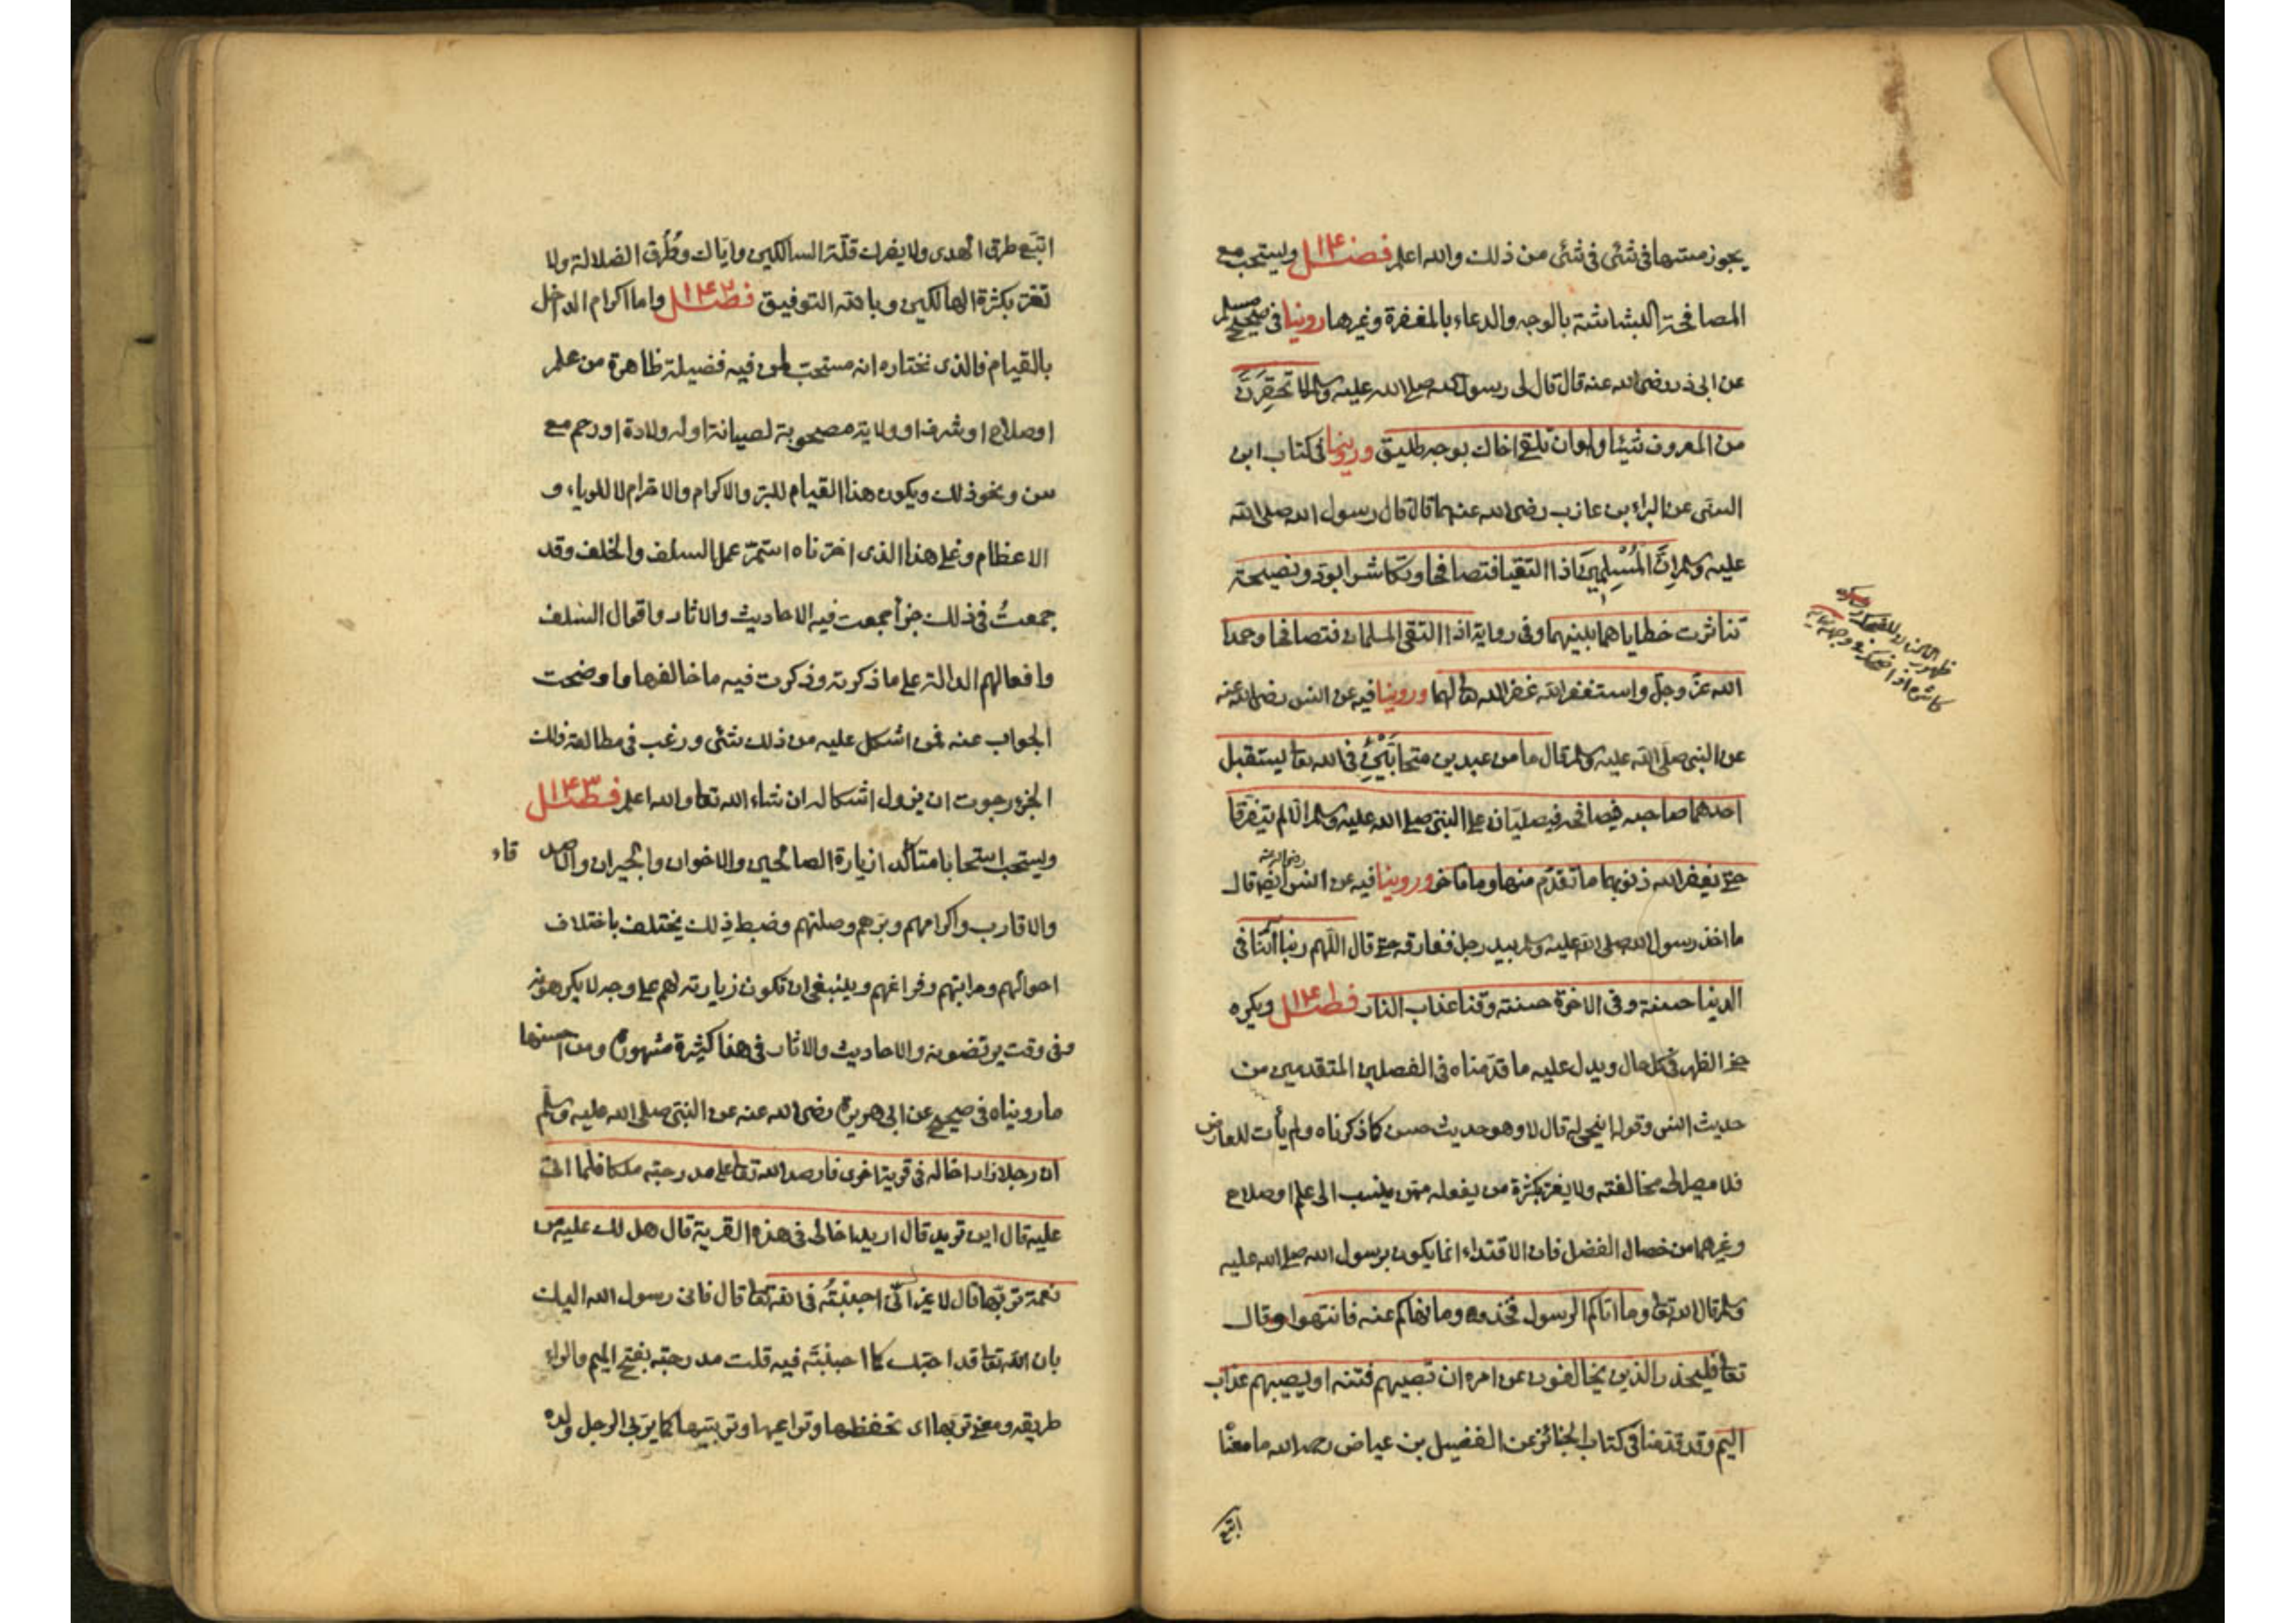 يجوز مسها فى شئى فى شئى من ذلك والله اعلم فصل ويستحب مع
المصافحة البشاشة بالوجه والدعاء بالمغفرة وغيرها روينا فى صحيح مسلم
عن ابى ذر رضى الله عنه قال قال لى رسول الله صلى الله عليه وسلم لا تحقِرَنَّ
من المعروف شيئا ولو ان تلقى اخاك بوجه طليق وروينا فى كتاب ابن
السنى عن البراء بن عازب رضى الله عنهما قال قال رسول الله صلى الله
عليه وسلم اِنَّ المُسْلِمِيَنَ اذا التقيا فتصافحا وتكاشرا بود ونصيحة
تناثرت خطاياهما بينهما وفى رواية اذا التقى المسلمان فتصافحا وحمدا
الله عزّ وجلّ واستغفرا الله غفر الله لهما وروينا فيه عن انس رضى الله عنه
عن النبى صلى الله عليه وسلم قال ما من عبدين متحابَّيْنِ فى الله تعا يستقبل
احدهما صاحبه فيصافحه فيصليان على النبى صلى الله عليه وسلم الا لم يتفرقا
حتى يغفر الله ذنوبهما ما تقدّم منها وما تأخر وروينا فيه عن انس رضى الله عنه ايضا قال
ما اخذ رسول الله صلى الله عليه وسلم بيد رجل ففارقه حتى قال اللّهم ربنا اتنا فى
الدنيا حسنة وفى الاخرة حسنة وقنا عذاب النار فصل ويكره
حنى الظهر فى كل حال ويدل عليه ما قدّمناه فى الفصلين المتقدمين من
حديث انس وقوله اينحنى له قال لا وهو حديث حسن كما ذكرناه ولم يأت له معارض
فلا مصير الى مخالفته ولا يغتر بكثرة من يفعله ممن ينسب الى علم او صلاح
وغيرهما من خصال الفضل فان الاقتداء انما يكون برسول الله صلى الله عليه
وسلم قال الله تعا وما اتاكم الرسول فخذوه وما نهاكم عنه فانتهوا وقال
تعا فليحذر الذين يخالفون عن امره ان تصيبهم فتنة او يصيبهم عذاب
اليم وقد قدّمنا فى كتاب الجنائز عن الفضيل بن عياض رحمه الله ما معناه
اتبع
اتبع طرق الهدى ولا يضرك قلّة السالكين واياك وطُرُق الضلالة ولا
تغتر بكثرة الهالكين وبالله التوفيق فصل ١٤٢ واما اكرام الداخل
بالقيام فالذى نختاره انه مستحب لمن فيه فضيلة ظاهرة من علم
او صلاح او شرف او ولاية مصحوبة لصيانة او له ولادة او رحم مع
سن ونحو ذلك ويكون هذا القيام للبر والاكرام والاحترام لا للرياء و
الاعظام وعلى هذا الذى اخترناه استمرّ عمل السلف والخلف وقد
جمعتُ فى ذلك جزأ جمعت فيه الاحاديث والاثار واقوال السلف
وافعالهم الدالة على ما ذكرته وذكرت فيه ما خالفها واوضحت
الجواب عنه فمن اشكل عليه من ذلك شئى ورغب فى مطالعة ذلك
الجزء رجوت ان يزول اشكاله ان شاء الله تعا والله اعلم فصل ١٤٣
ويستحب استحبابا متأكدا زيارة الصالحين والاخوان والجيران والاصد قاء
والاقارب واكرامهم وبرّهم وصلتهم وضبط ذلك يختلف باختلاف
احوالهم ومراتبهم وفراغهم وينبغى ان تكون زيارته لهم على وجه لا يكرهونه
وفى وقت يرتضونه والاحاديث والاثار فى هذا كثيرة مشهورة ومن احسنها
ما رويناه فى صحيح عن ابى هريرة رضى الله عنه عن النبى صلى الله عليه وسلم
ان رجلا زار اخا له فى قرية اخرى فارصد الله تعا على مدرجته ملكا فلما اتى
عليه قال اين تريد قال اريد اخا لى فى هذه القرية قال هل لك عليه من
نعمة تربّها قال لا غير انّى احببتُه فى الله تعا قال فانى رسول الله اليك
بان الله تعا قد احبك كما احببتَه فيه قلت مدرجته بفتح الميم والراء
طريقه ومعنى تربّها اى تحفظها وتراعيها وتربيها كما يربى الرجل ولده